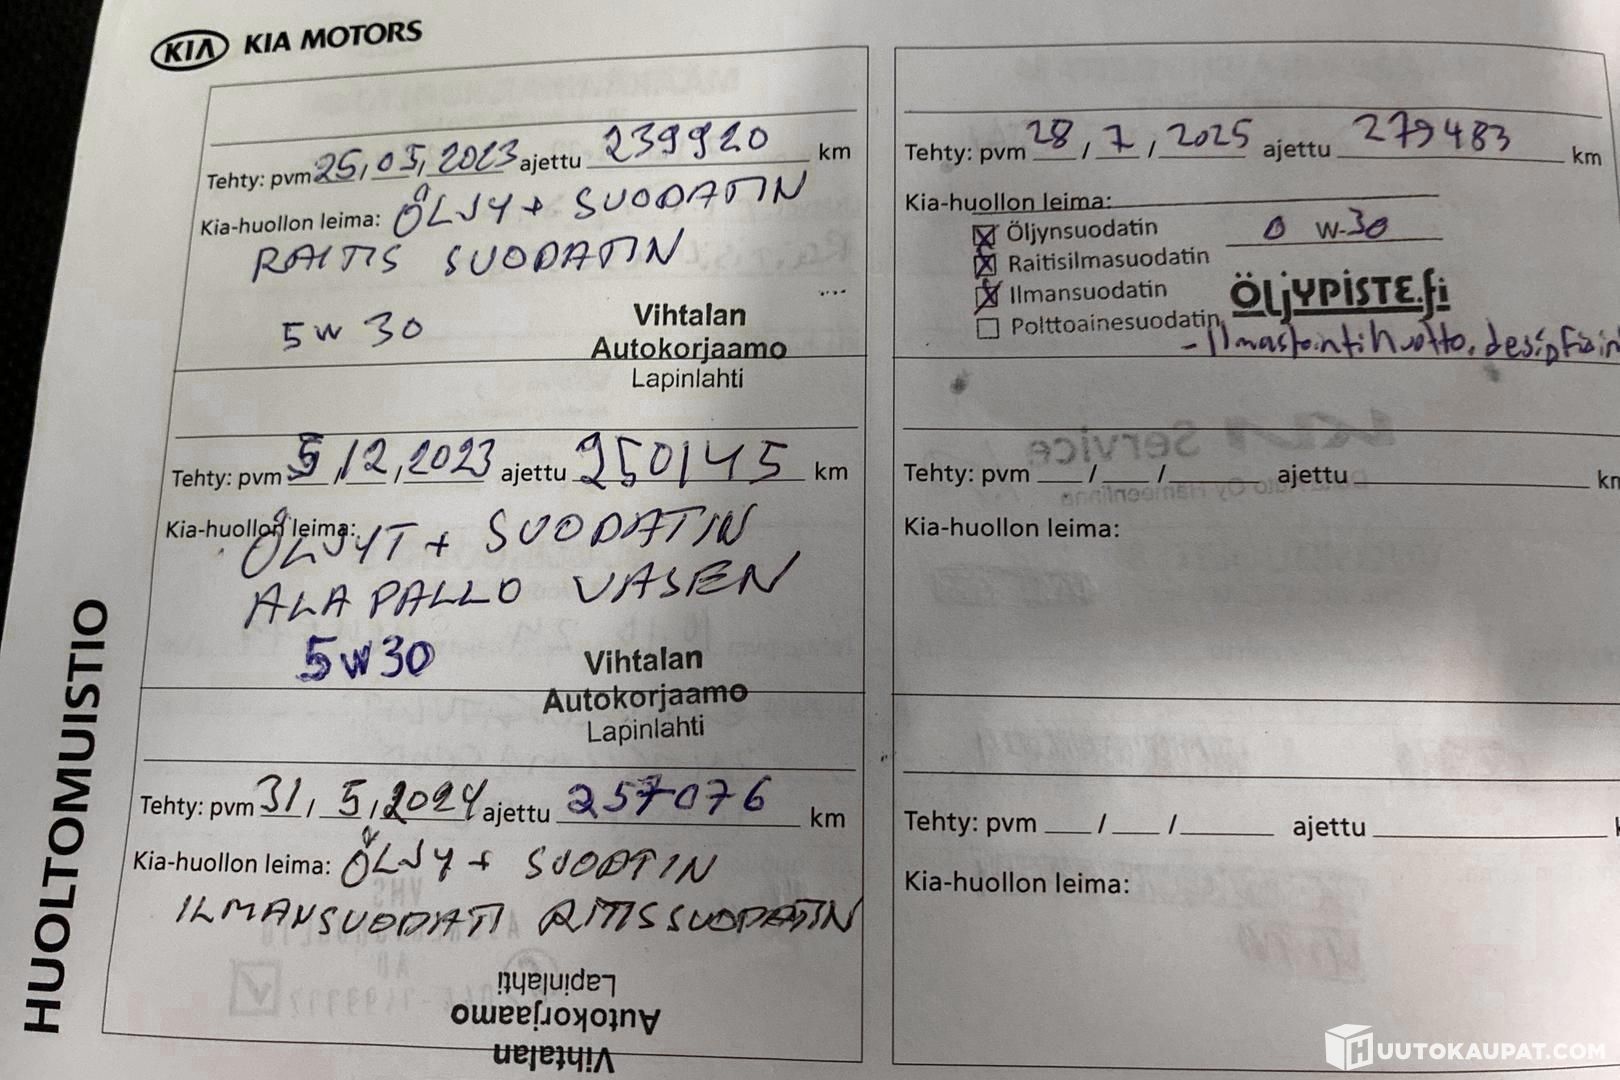 KIA KIA MOTORS
Tehty: pvm 25/05/2023 ajettu 239920 km
Kia-huollon leima: ÖLJY + SUODATIN
RAITIS SUODATIN
5W 30
Vihtalan
Autokorjaamo
Lapinlahti
Tehty: pvm 5/12/2023 ajettu 250145 km
Kia-huollon leima:
ÖLJYT + SUODATIN
ALAPALLO VASEN
5W30
Vihtalan
Autokorjaamo
Lapinlahti
Tehty: pvm 31/5/2024 ajettu 257076 km
Kia-huollon leima: ÖLJY + SUODTIN
ILMANSUODATI RITISSUODATIN
Vihtalan
Autokorjaamo
Lapinlahti
HUOLTOMUISTIO
Tehty: pvm 28/7/2025 ajettu 279483 km
Kia-huollon leima:
Öljynsuodatin 0 W-30
Raitisilmasuodatin
Ilmansuodatin
Polttoainesuodatin
ÖLJYPISTE.fi
- Ilmastointihuolto,
Tehty: pvm / / ajettu km
Kia-huollon leima:
Tehty: pvm / / ajettu
Kia-huollon leima:
HUUTOKAUPAT.COM